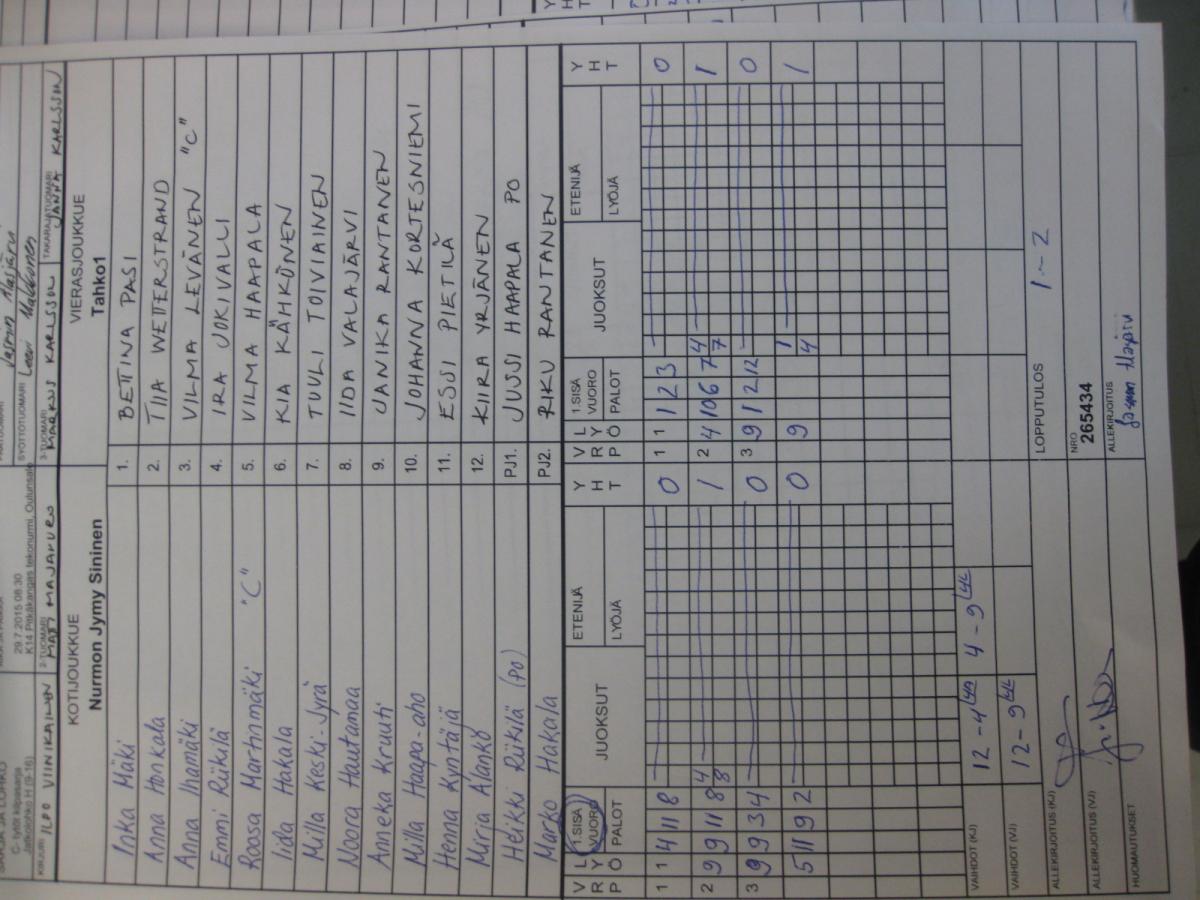 SARJA JA LOHKO
C-tytöt kilpasarja
Jatkolohko H (9-16)
29.7.2015 08:30
K14 Pekäkangas tekonurmi, Oulunsalo
SYÖTTÖTUOMARI Leevi Makkonen
KIRJURI ILPO VIINIKAINEN 2-TUOMARI MATTI MAJAPURO 3-TUOMARI MARKUS KARLSSON TAKARAJATUOMARI JANNA KARLSSON
KOTIJOUKKUE VIERASJOUKKUE
Nurmon Jymy Sininen Tahko1
Inka Mäki 1. BETTINA PASI
Anna Honkala 2. TIIA WETTERSTRAND
Anna Ihamäki 3. VILMA LEVÄNEN "C"
Emmi Riikilä 4. IRA JOKIVALLI
Roosa Martinmäki "C" 5. VILMA HAAPALA
Iida Hakala 6. KIA KÄHKÖNEN
Milla Keski-Jyrä 7. TUULI TOIVIAINEN
Noora Hautamaa 8. IIDA VALAJÄRVI
Anneka Kruuti 9. JANIKA RANTANEN
Milla Haapa-aho 10. JOHANNA KORTESNIEMI
Henna Kyntäjä 11. ESSI PIETILÄ
Mirja Alanko 12. KIIRA YRJÄNEN
Heikki Riikilä (PO) PJ1. JUSSI HAAPALA PO
Marko Hakala PJ2. RIKU RANTANEN
V R P L Y Ö 1.SISÄ VUORO PALOT JUOKSUT ETENIJÄ LYÖJÄ Y H T V R P L Y Ö 1.SISÄ VUORO PALOT JUOKSUT ETENIJÄ LYÖJÄ Y H T
1 1 4 11 8 0 1 1 1 2 3 0
2 9 9 11 8 4 8 1 2 4 10 6 7 4 7 1
3 9 9 3 4 0 3 9 1 2 12 0
5 11 9 2 0 9 1 4 1
VAIHDOT (KJ) 12 - 4 4 - 9
VAIHDOT (VJ) 12 - 9
ALLEKIRJOITUS (KJ) LOPPUTULOS 1 - 2
ALLEKIRJOITUS (VJ) NRO 265434
HUOMAUTUKSET ALLEKIRJOITUS